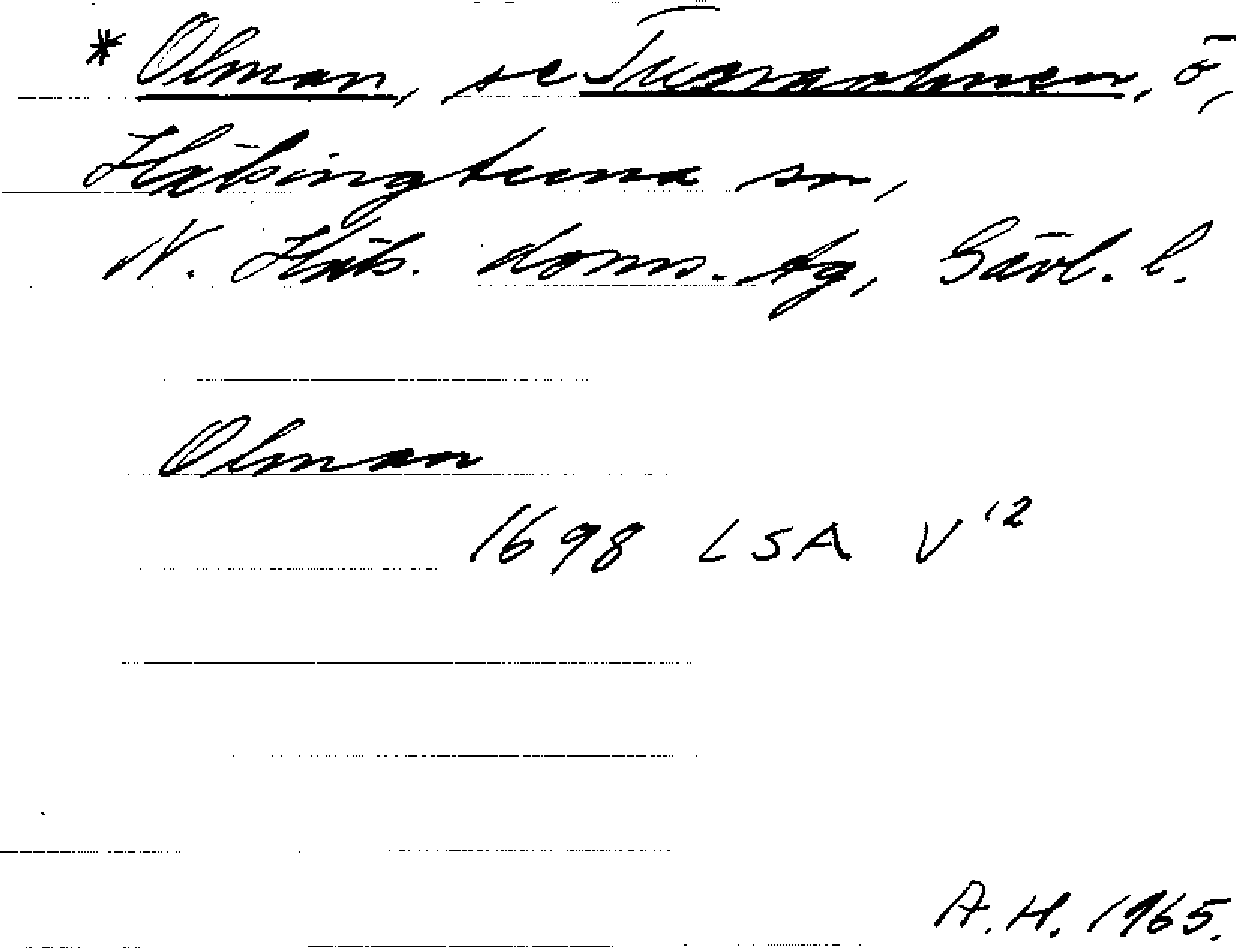 * Olman, se Tunaholmen, ö,
Hälsingtuna sn,
N. Häls. doms. tg, Gävl. l.
Olman
1698 LSA V 12
A.H. 1965.